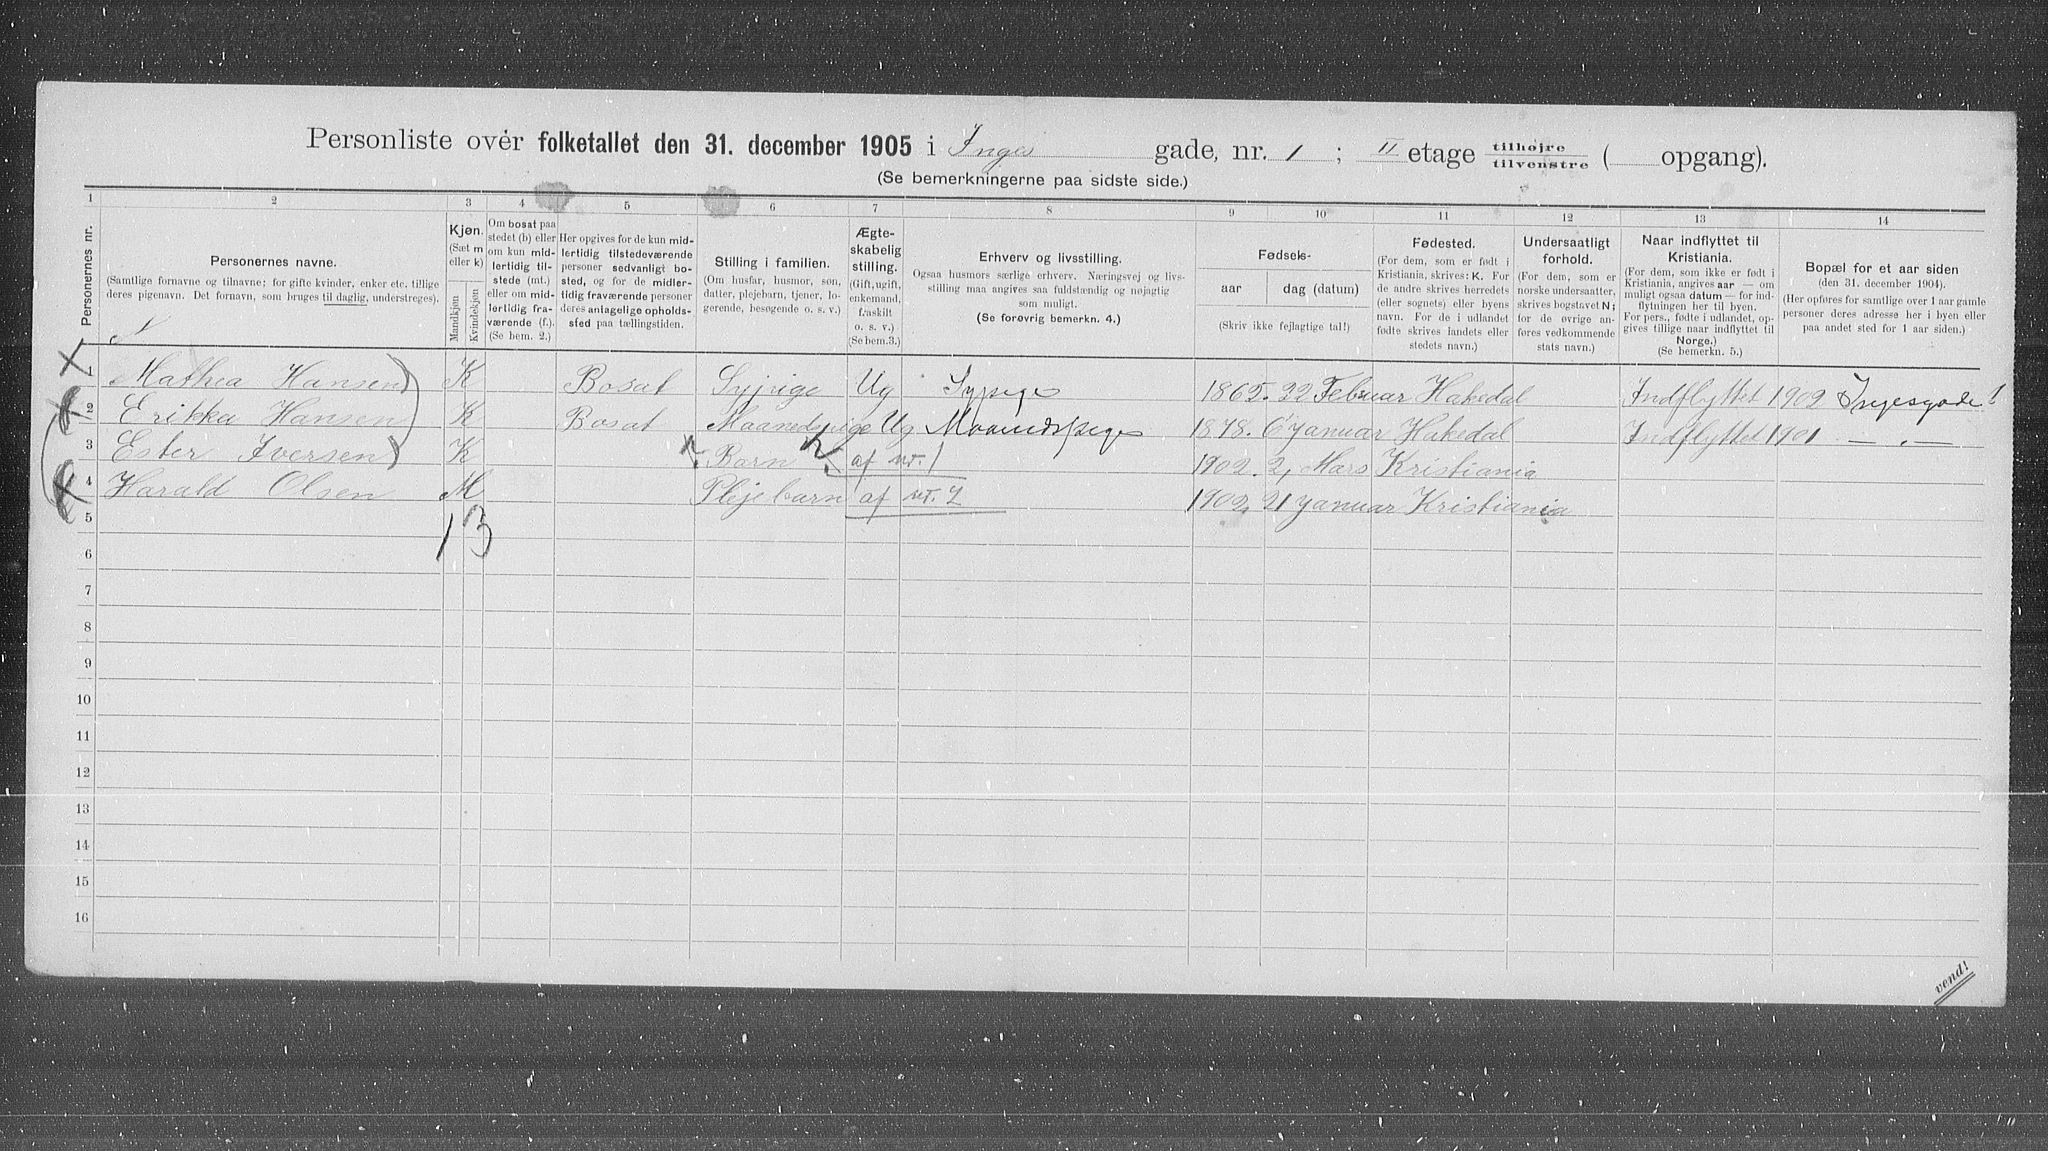 Personliste over folketallet den 31. december 1905 i Inges gade, nr. 1 ; II etage tilhøjre tilvenstre ( opgang).
(Se bemerkningerne paa sidste side.)
1 2 3 4 5 6 7 8 9 10 11 12 13 14
Personernes nr.
Personernes navne.
(Samtlige fornavne og tilnavne; for gifte kvinder, enker etc. tillige
deres pigenavn. Det fornavn, som bruges til daglig, understreges).
Kjøn.
(Sæt m
eller k)
Mandkjøn
Kvindekjøn
Om bosat paa
stedet (b) eller
om kun mid-
lertidig til-
stede (mt.)
eller om mid-
lertidig fra-
værende (f.).
(Se bem. 2.)
Her opgives for de kun mid-
lertidig tilstedeværende
personer sedvanligt bo-
sted, og for de midler-
tidig fraværende personer
deres antagelige opholds-
sted paa tællingstiden.
Stilling i familien.
(Om husfar, husmor, søn,
datter, plejebarn, tjener, lo-
gerende, besøgende o. s. v.)
Ægte-
skabelig
stilling.
(Gift, ugift,
enkemand,
fraskilt
o. s. v.)
(Se bem.3.)
Erhverv og livsstilling.
Ogsaa husmors særlige erhverv. Næringsvej og livs-
stilling maa angives saa fuldstændig og nøjagtig
som muligt.
(Se forøvrig bemerkn. 4.)
Fødsels-
aar
dag (datum)
(Skriv ikke fejlagtige tal!)
Fødested.
(For dem, som er født i
Kristiania, skrives: K. For
de andre skrives herredets
(eller sognets) eller byens
navn. For de i udlandet
fødte skrives landets eller
stedets navn.)
Undersaatligt
forhold.
(For dem, som er
norske undersaatter,
skrives bogstavet N;
for de øvrige an-
føres vedkommende
stats navn.)
Naar indflyttet til
Kristiania.
(For dem, som ikke er født i
Kristiania, angives aar — om
muligt ogsaa datum — for ind-
flytningen her til byen.
For pers., fødte i udlandet, op-
gives tillige naar indflyttet til
Norge.)
(Se bemerkn. 5.)
Bopæl for et aar siden
(den 31. december 1904).
(Her opføres for samtlige over 1 aar gamle
personer deres adresse her i byen eller
paa andet sted for 1 aar siden.)
1 Mathea Hansen K Bosat Syjpige Ug Sypige 1862. 22 Februar Hakedal Indflyttet 1902 Ingesgade 1
2 Erikka Hansen K Bosat Maanedspige Ug Maanedspige 1878. 6 Januar Hakedal Indflyttet 1901 — „ —
3 Ester Iversen K Barn af nr. 1 1902. 2, Mars Kristiania
4 Harald Olsen M Plejebarn af nr. 2 1902. 21 Januar Kristiania
5
1 3
6
7
8
9
10
11
12
13
14
15
16
vend!